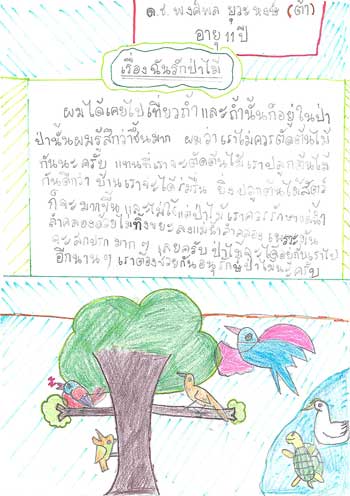 ด.ช. พงศ์พล ยุวะหงษ์ (ต้า)
อายุ 11 ปี
เรื่องฉันรักป่าไม้
ผมได้เคยไปเที่ยวถ้ำและถ้ำนั้นก็อยู่ในป่า
ป่านั้นผมรู้สึกว่าชื้นมาก ผมว่าเราไม่ควรตัดต้นไม้
กันนะครับ แทนที่เราจะตัดต้นไม้ เราปลูกต้นไม้
กันดีกว่า บ้านเราจะได้ร่มรื่น ยิ่งปลูกต้นไม้สัตว์
ก็จะมากขึ้น และไม่ใช่แต่ป่าไม้ เราควรรักษาแม่น้ำ
ลำคลองด้วยไม่ทิ้งขยะลงแม่น้ำลำคลอง เพราะมัน
จะสกปรก มาก ๆ เลยครับ ป่าไม้จะได้อยู่กับเราไป
อีกนาน ๆ เราต้องช่วยกันอนุรักษ์ป่าไม้นะครับ